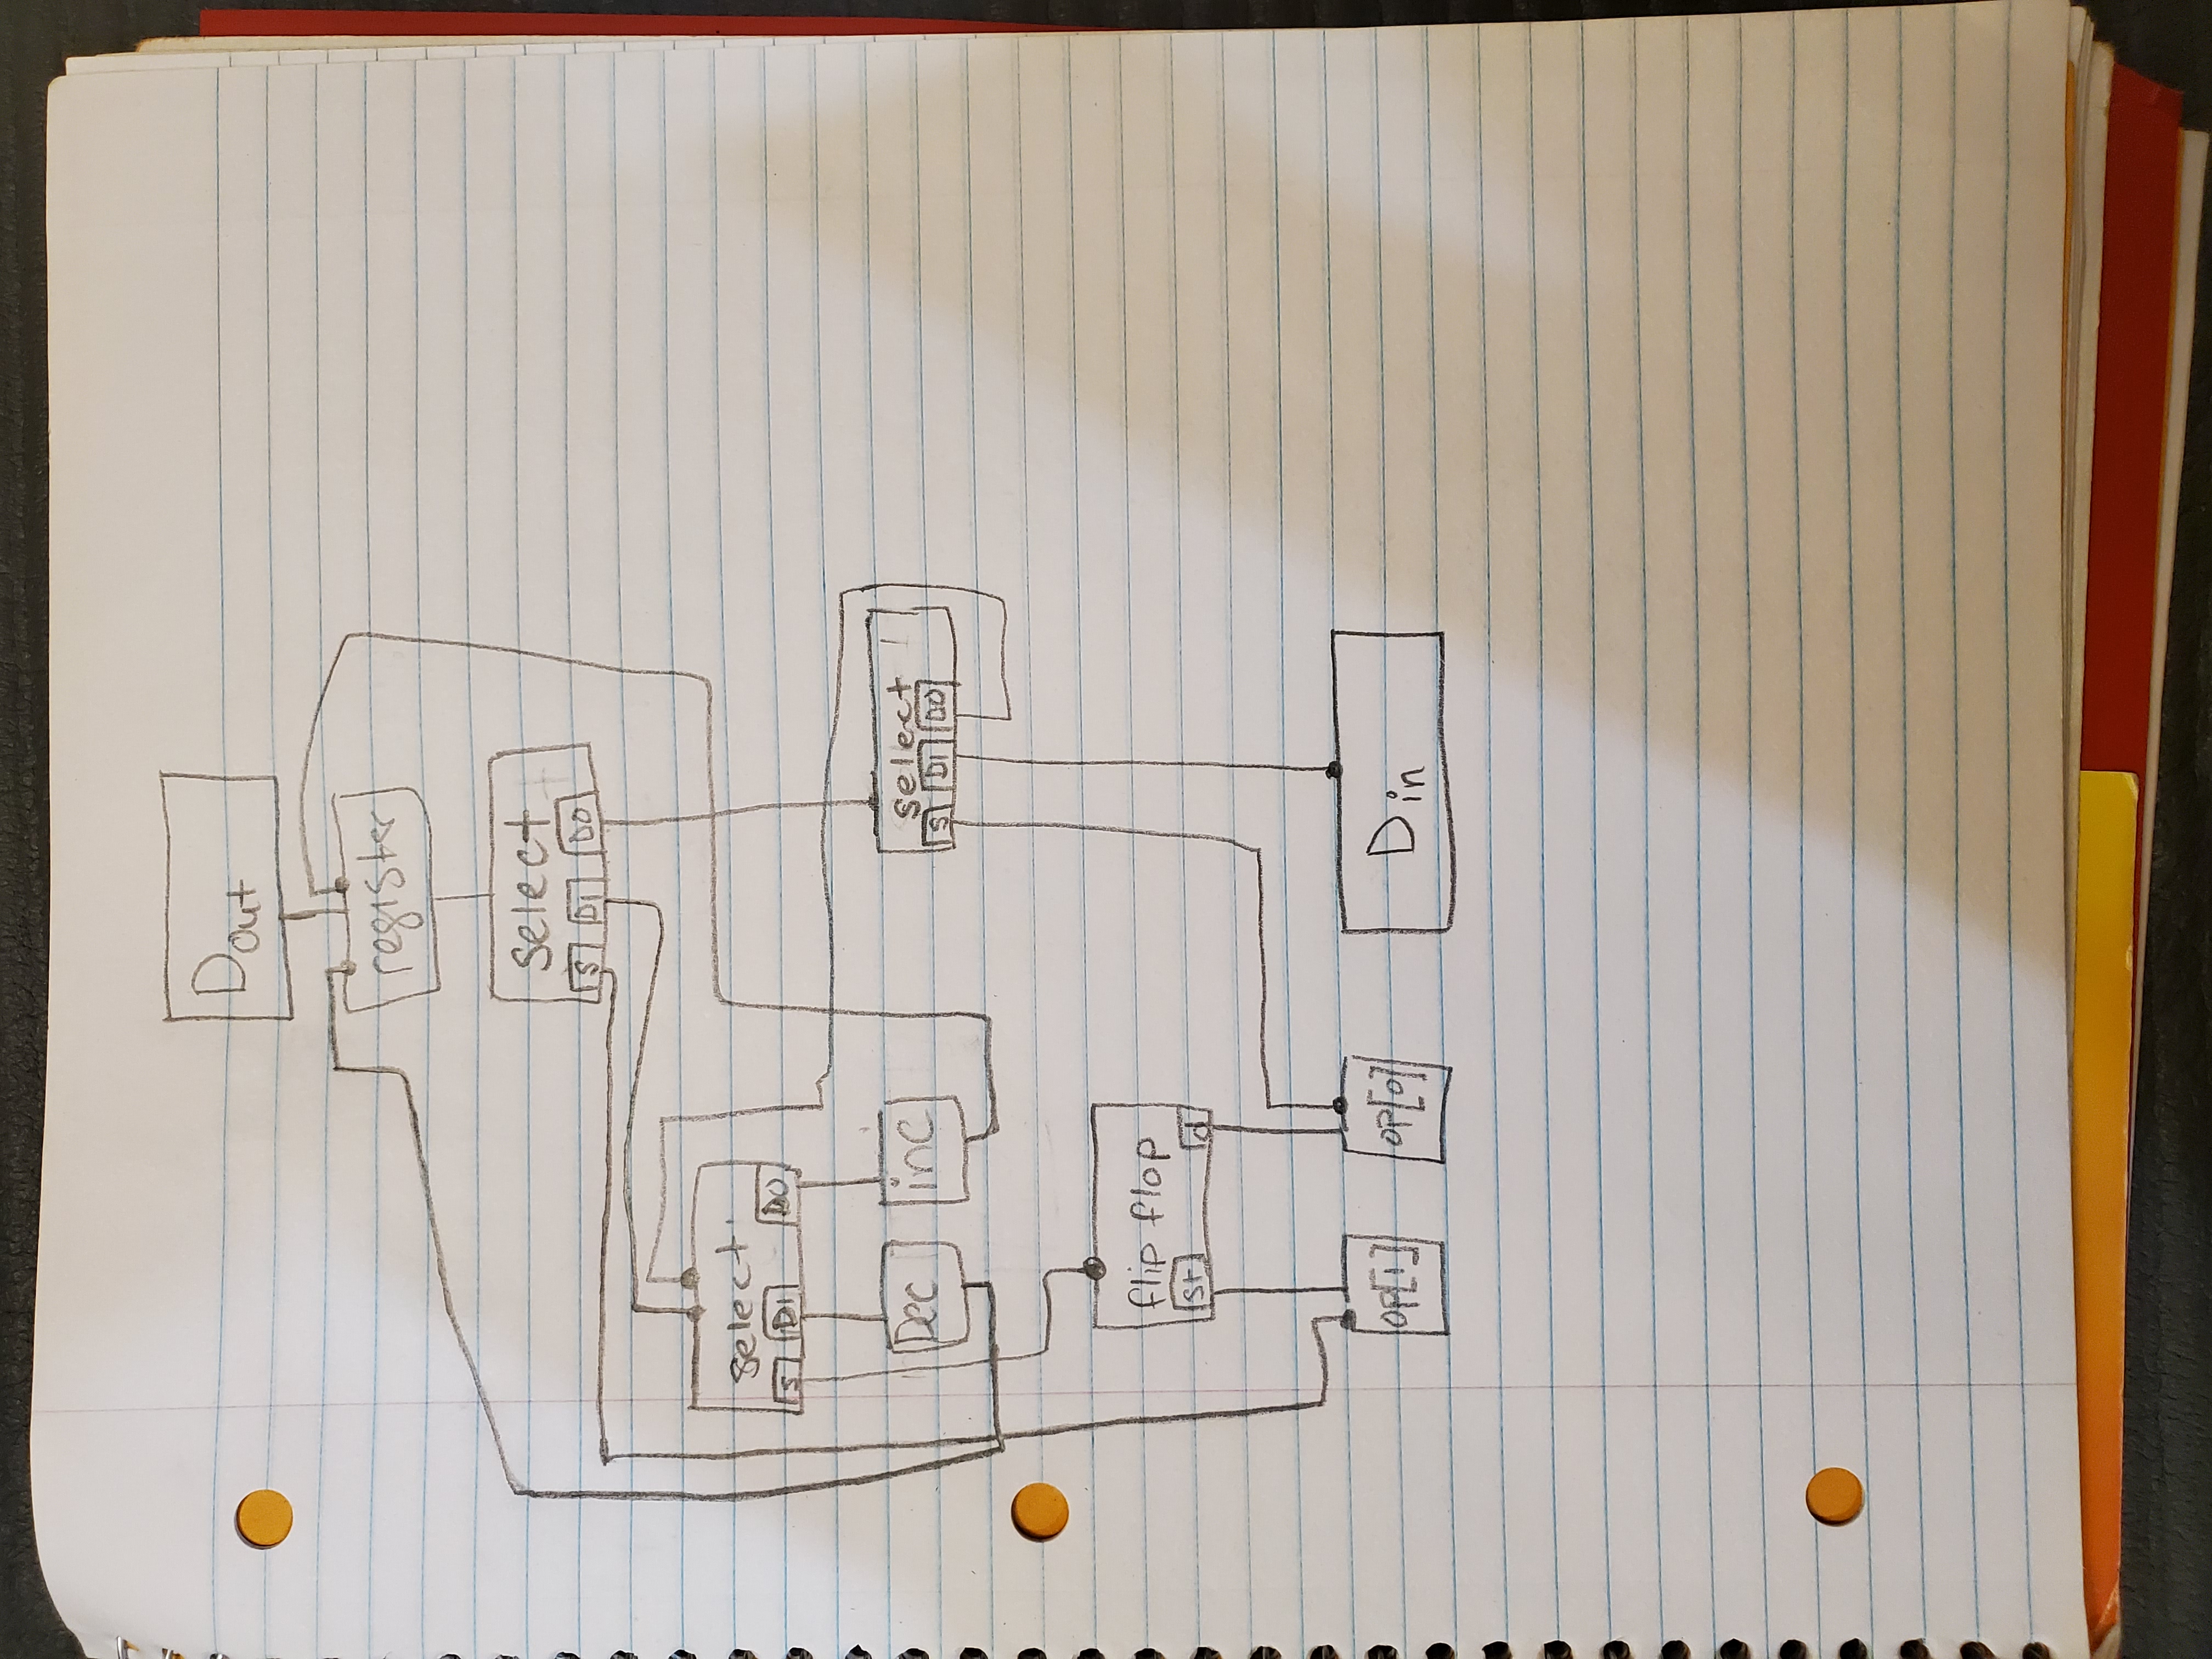 Dout
register
select
S D1 D0
select
S D1 D0
Dec inc
select
S D1 D0
flip flop
st d
op[1] op[0] Din